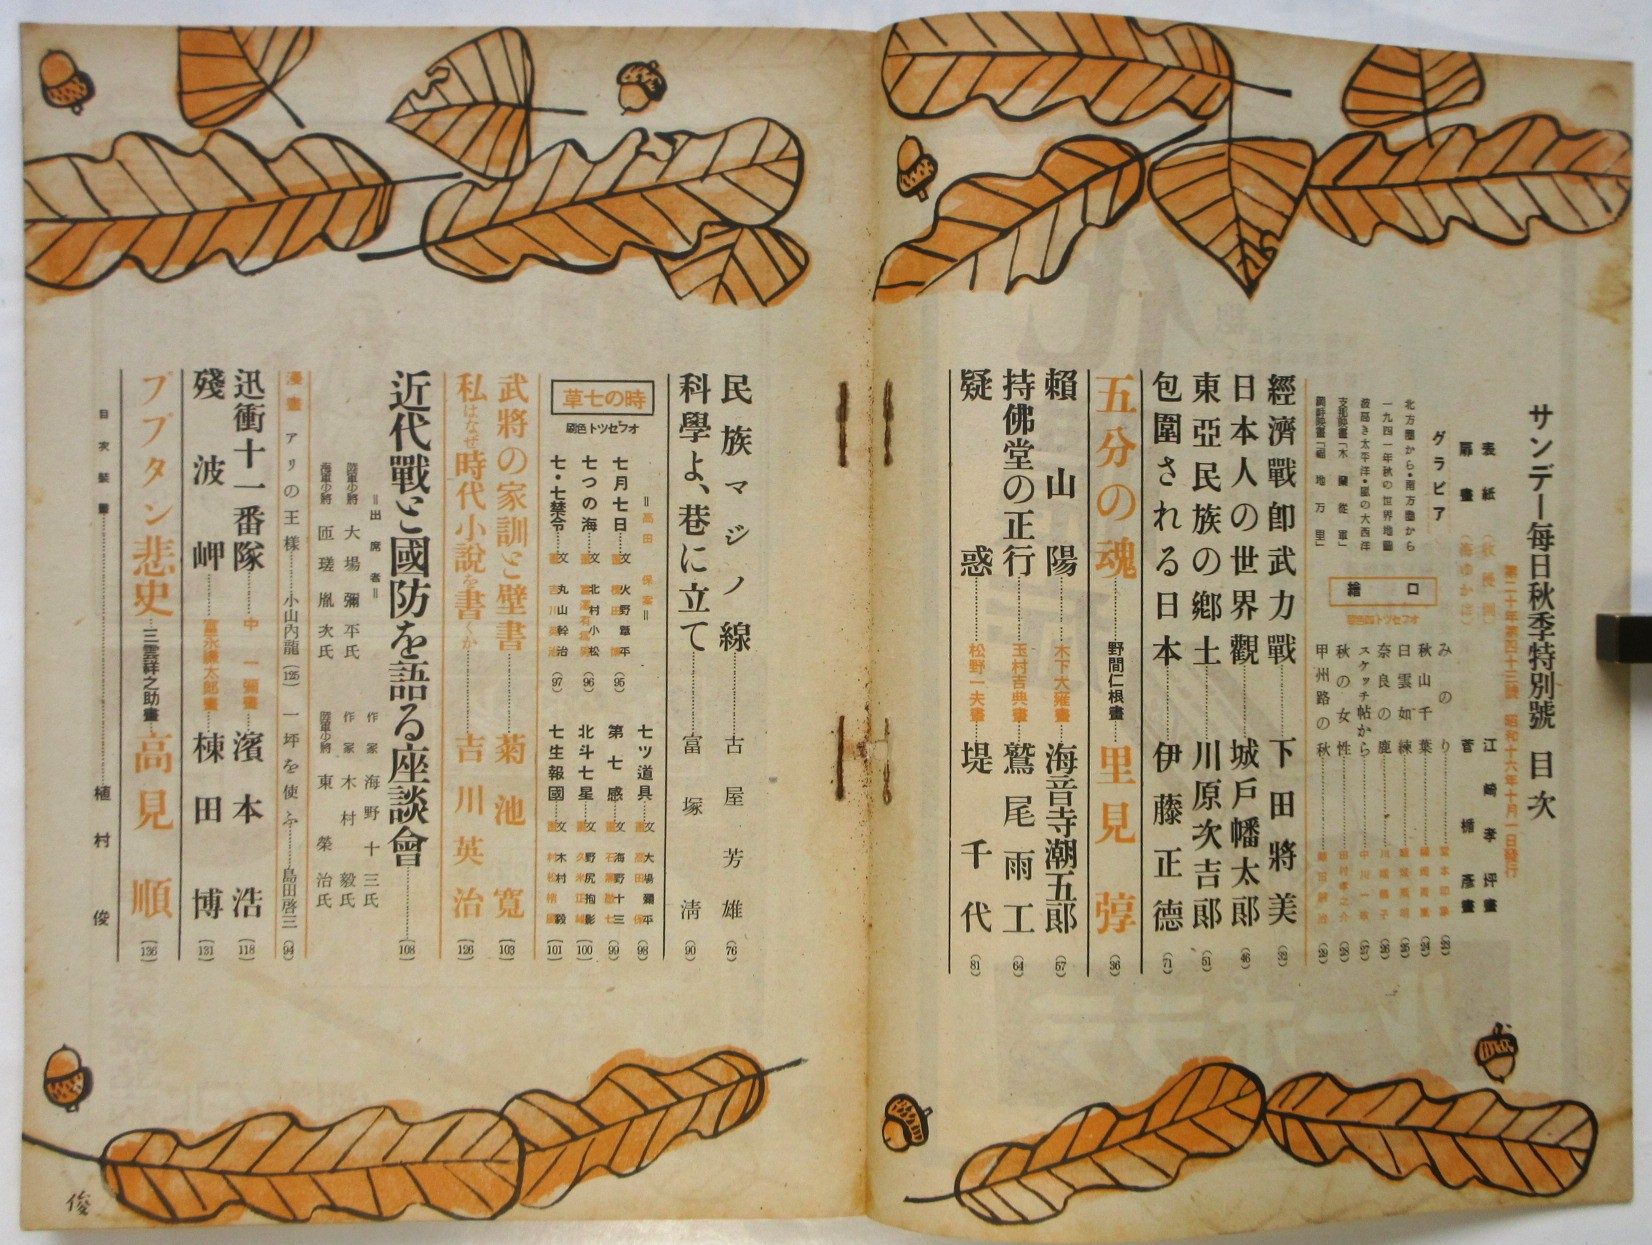 サンデー毎日秋季特別號 目次
第二十年第四十三號 昭和十六年十月一日發行
表紙
江崎孝坪畫
扉畫
菅楯彦畫
グラビア
北方圈から・南方圈から
一九四一年秋の世界地圖
波騒ぎ太平洋・嵐の大西洋
口繪
オフセツト四色版
みのり (23)
秋山千葉 (24)
白雲如練 (25)
奈良の鹿 (26)
スケッチ帖から (27)
秋の女性 (28)
甲州路の秋 (29)
經濟戰卽武力戰 下田將美 (32)
日本人の世界觀 城戶幡太郞 (46)
東亞民族の鄕土 川原次吉郞 (51)
包圍される日本 伊藤正德 (71)
五分の魂 野間仁根畫 里見弴 (36)
賴山陽 木下大雍畫 海音寺潮五郎 (57)
持佛堂の正行 玉村吉典畫 鷲尾雨工 (64)
疑惑 松野一夫畫 堤千代 (81)
民族マジノ線 古屋芳雄 (76)
科學よ、巷に立て 富塚淸 (90)
時の七草
オフセツト色版
=高田保案=
七月七日 文 火野葦平 (95)
七つの海 文 北村小松 (96)
七・七禁令 文 丸山幹治 (97)
七ツ道具 文 大場彌平 (98)
第七感 文 海野十三 (99)
北斗七星 文 野尻抱影 (100)
七生報國 文 木村毅 (101)
武將の家訓と壁書 菊池寬 (103)
私はなぜ時代小說を書くか 吉川英治 (126)
近代戰と國防を語る座談會 (108)
=出席者=
陸軍少將 大場彌平氏
海軍少將 匝瑳胤次氏
作家 海野十三氏
作家 木村毅氏
陸軍少將 東榮治氏
漫畫 アリの王樣 小山內龍 (125)
一坪を使ふ 島田啓三 (94)
迅衝十一番隊 中一彌畫 濱本浩 (118)
殘波岬 富永謙太郎畫 棟田博 (131)
ププタン悲史 三雲祥之助畫 高見順 (136)
目次裝畫 植村俊
俊